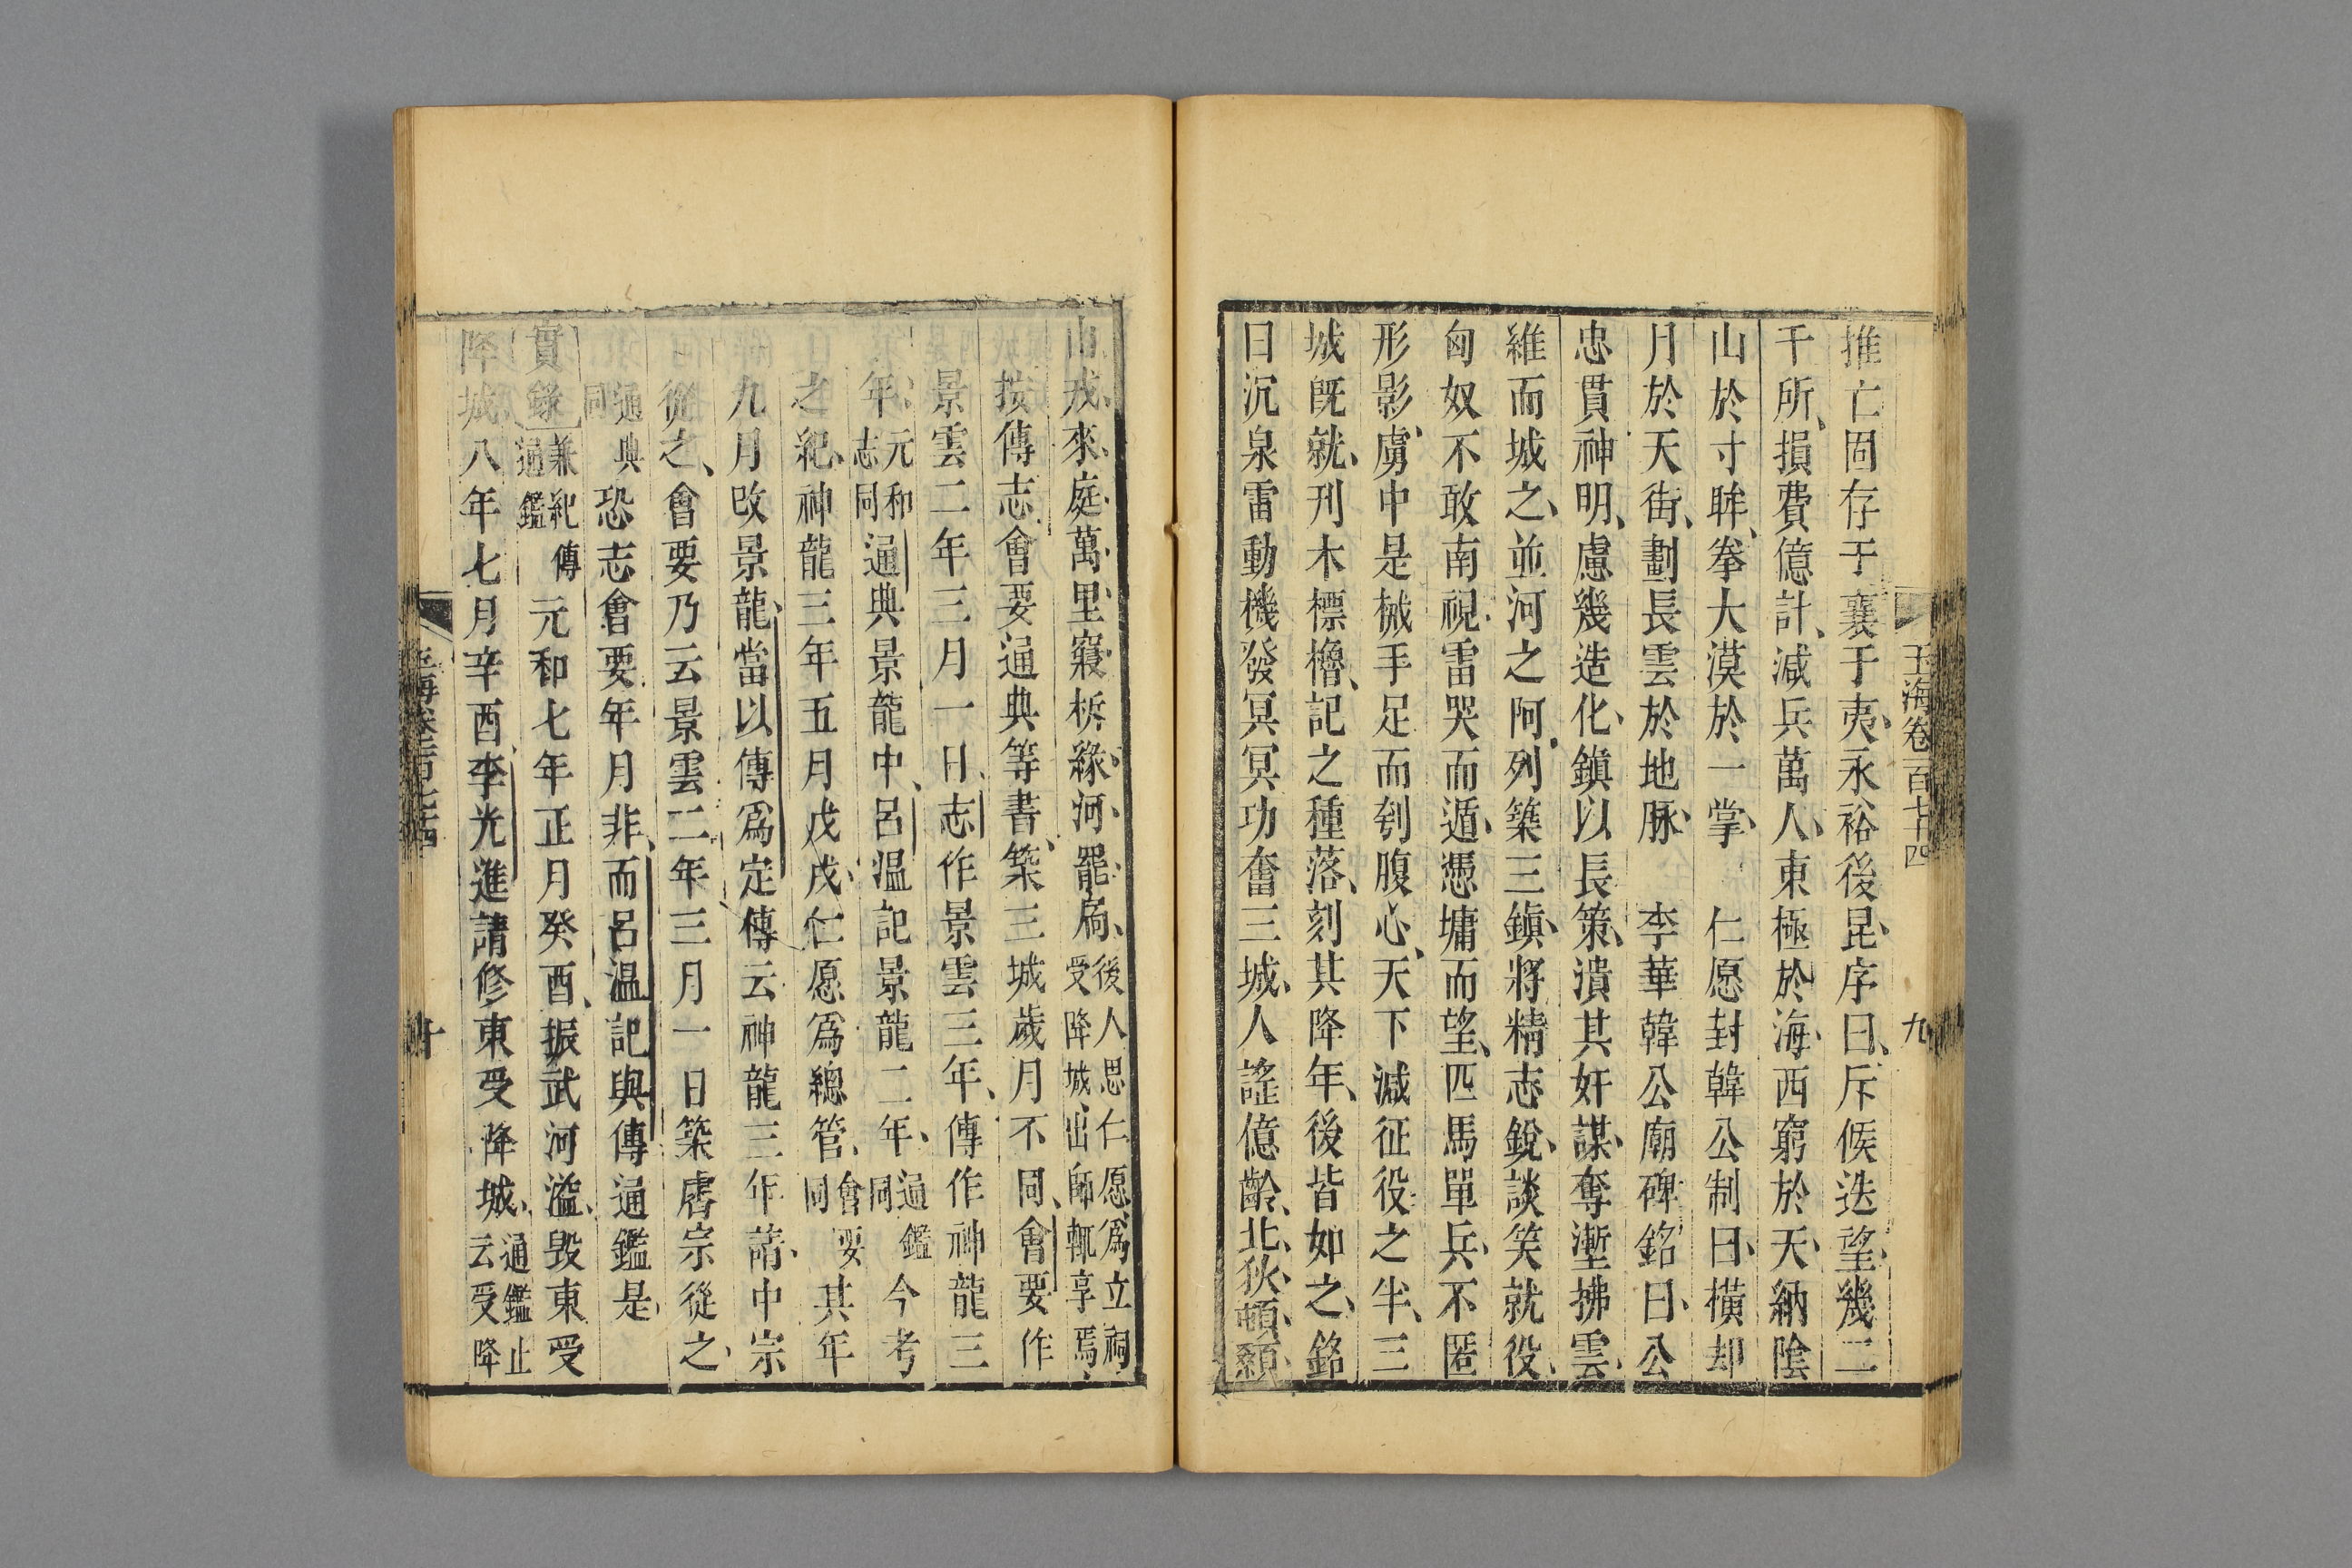 玉海卷一百七十四 九
推亡固存于襄于夷永裕後昆序曰斥候迭望幾二
千所損費億計減兵萬人東極於海西窮於天納陰
山於寸眸拳大漠於一掌 仁愿封韓公制曰橫却
月於天街劃長雲於地脉 李華韓公廟碑銘曰公
忠貫神明慮幾造化鎭以長策潰其奸謀奪塹拂雲
維而城之並河之阿列築三鎭將精志銳談笑就役
匈奴不敢南視雷哭而遁憑墉而望匹馬單兵不匿
形影虜中是械手足而刳腹心天下減征役之半三
城旣就刋木標櫓記之種落刻其降年後皆如之銘
曰沉泉雷動機發冥冥功奮三城人謠億齡北狄頓顙
山戎來庭萬里寢柝緣河罷扃後人思仁愿爲立祠受降城出師輒享焉
按傳志會要通典等書築三城歲月不同會要作
景雲二年三月一日志作景雲三年傳作神龍三
年元和志同通典景龍中呂溫記景龍二年通鑑同今考
之紀神龍三年五月戊戌仁愿爲總管會要同其年
九月改景龍當以傳爲定傳云神龍三年請中宗
從之會要乃云景雲二年三月一日築睿宗從之
通典同恐志會要年月非而呂溫記與傳通鑑是
實錄兼紀傳通鑑元和七年正月癸酉振武河溢毁東受
降城八年七月辛酉李光進請修東受降城通鑑止云受降
玉海卷一百七十四 十